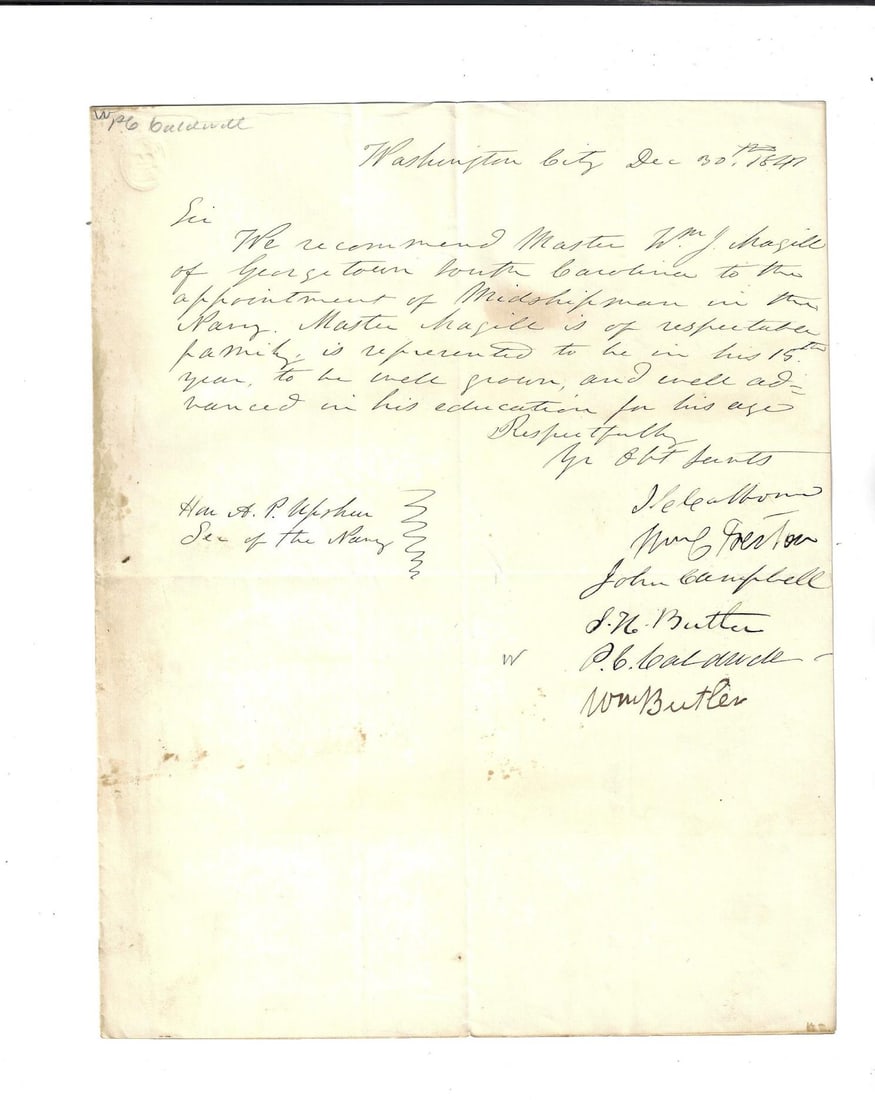 W PC Caldwell
Washington City Dec 30th 1841
Sir
We recommend Master Wm J. Magill
of Georgetown South Carolina to the
appointment of Midshipman in the
Navy. Master Magill is of respectable
family, is represented to be in his 15th
year, to be well grown, and well ad=
vanced in his education for his age
Respectfully
Yr Obt Servts
Hon A. P. Upshur
Sec of the Navy
J C Calhoun
Wm C Preston
John Campbell
S. H. Butler
W P. C. Caldwell
Wm Butler